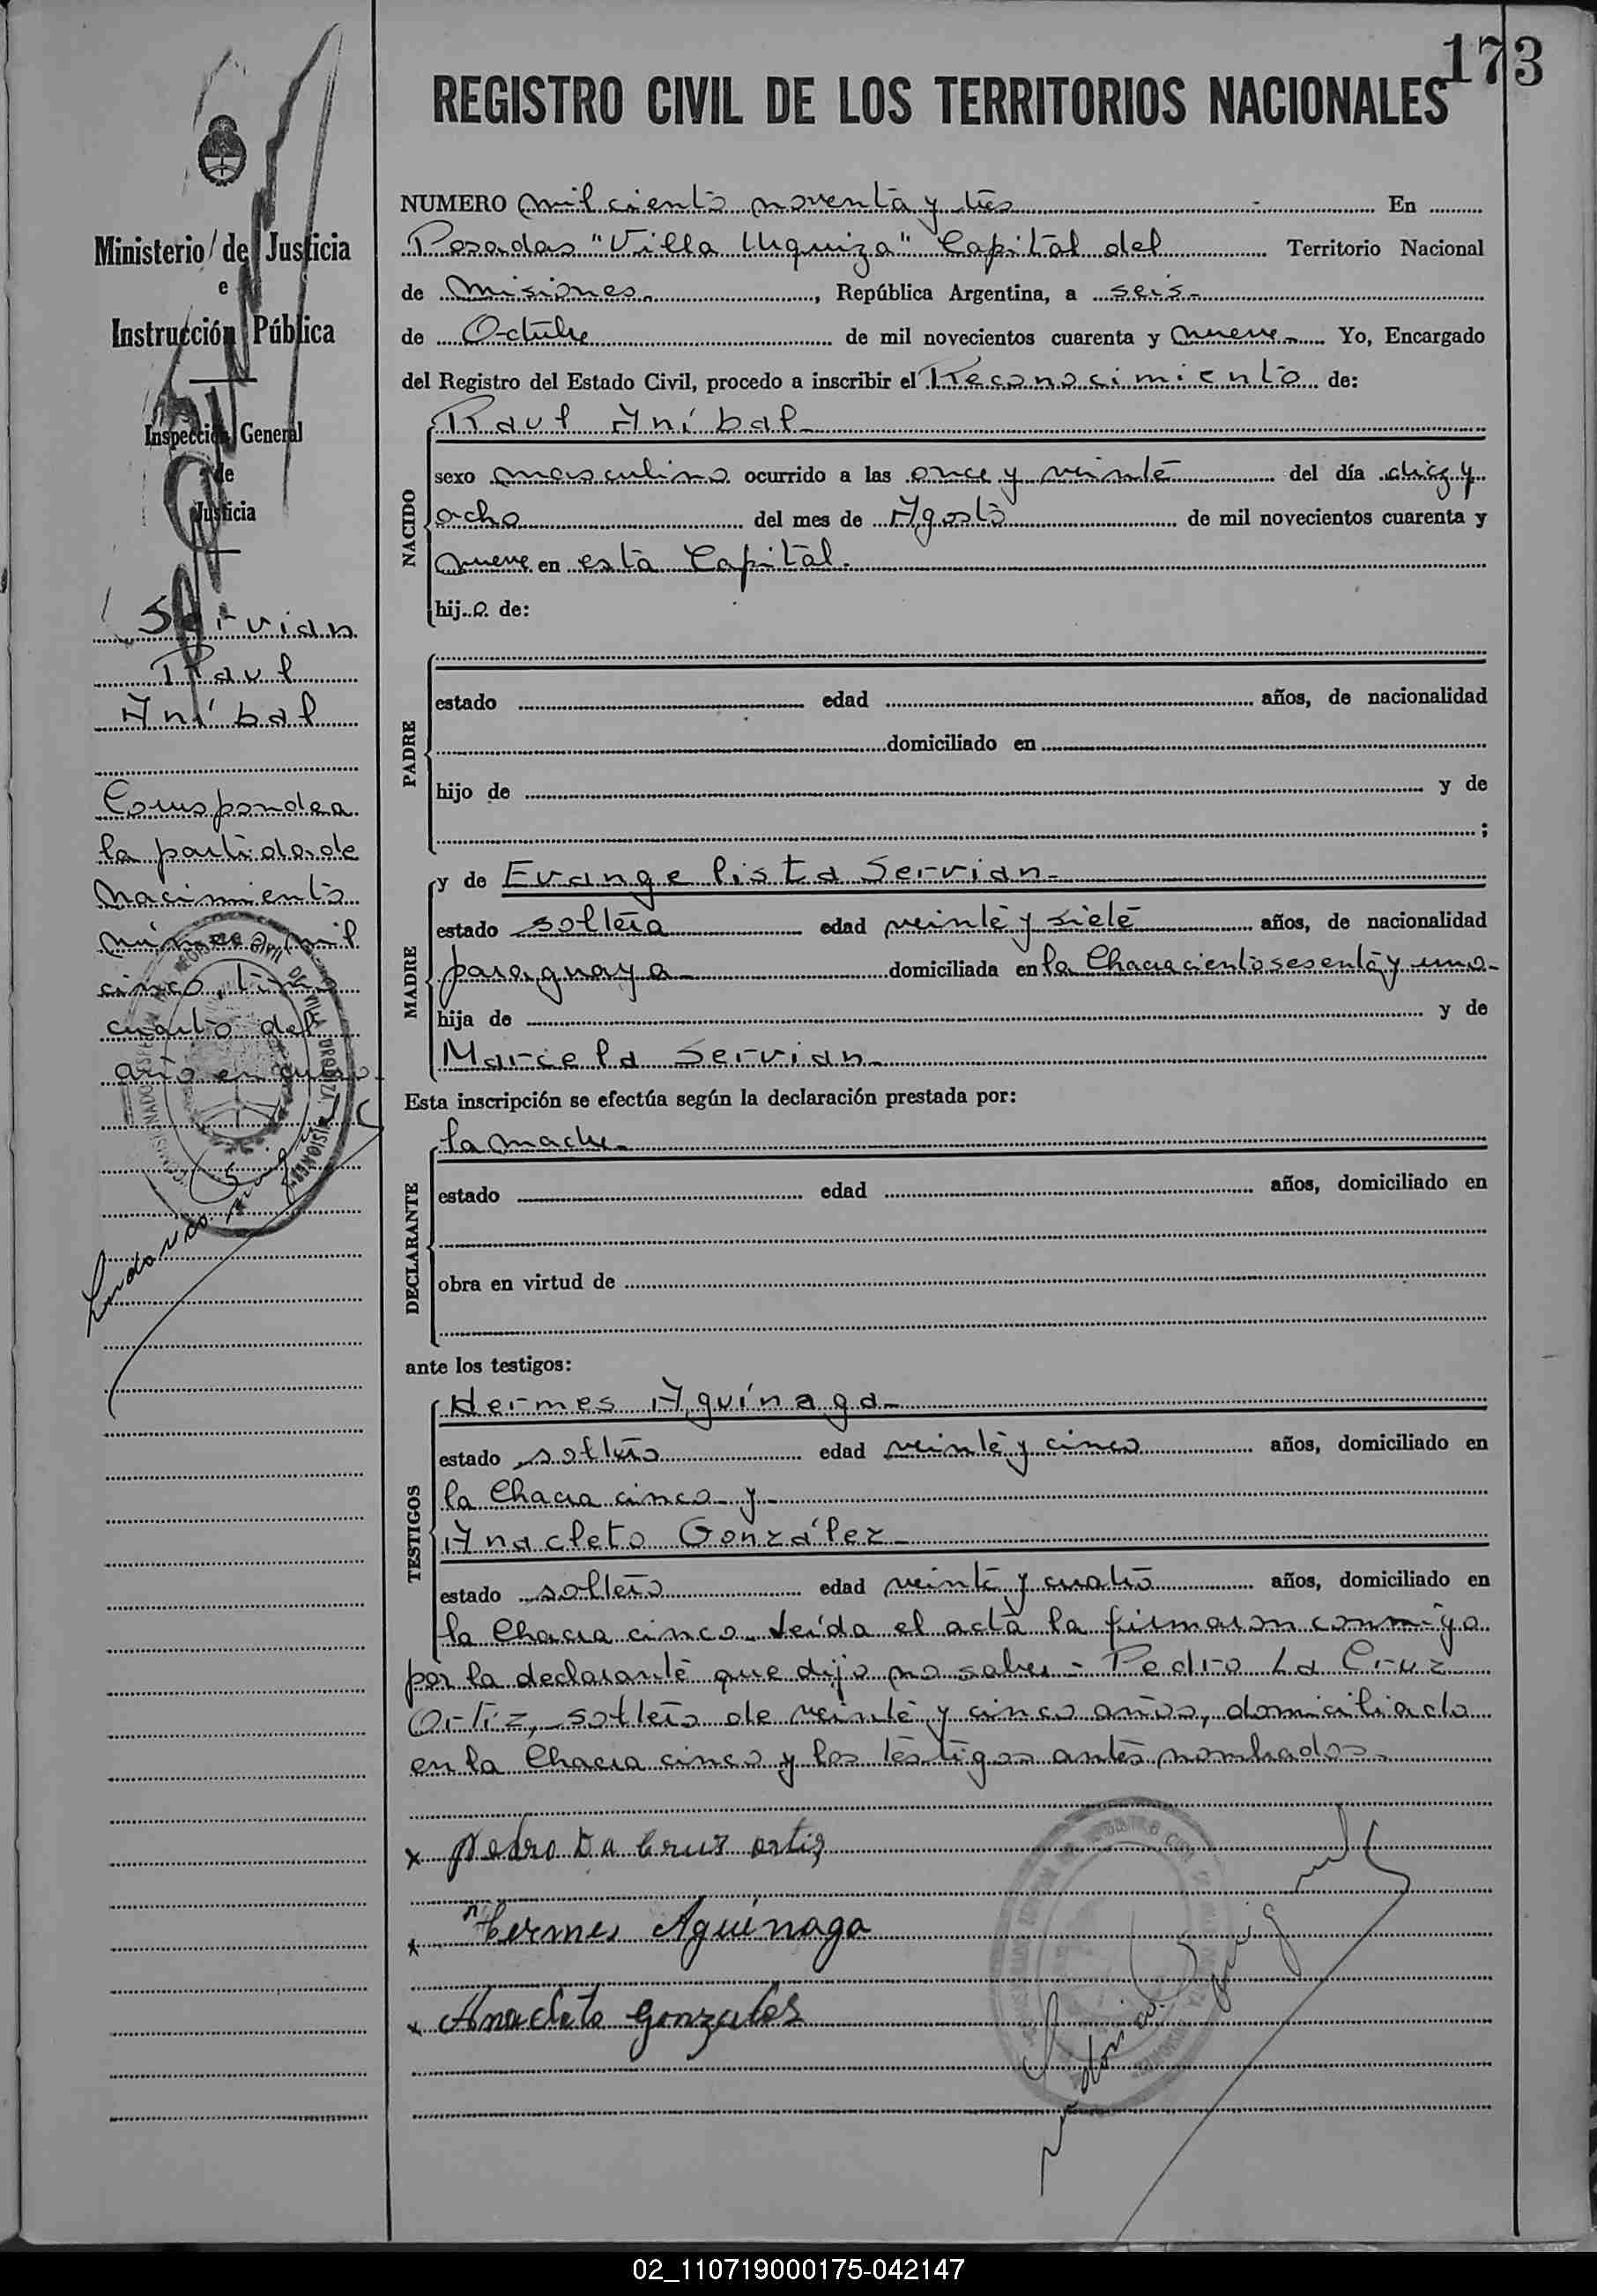 173
REGISTRO CIVIL DE LOS TERRITORIOS NACIONALES
Ministerio de Justicia
e
Instrucción Pública
Inspección General
de
Justicia
Servian
Raul
Aníbal
Corresponde a
la partida de
nacimiento
número mil
cinco tomo
cuarto del
año en curso
NUMERO mil ciento noventa y tres En
Posadas "Villa Urquiza" Capital del Territorio Nacional
de Misiones-, República Argentina, a seis-
de Octubre de mil novecientos cuarenta y nueve-. Yo, Encargado
del Registro del Estado Civil, procedo a inscribir el Reconocimiento de:
NACIDO
Raul Aníbal-
sexo masculino ocurrido a las once y veinte del día diez y
ocho del mes de Agosto de mil novecientos cuarenta y
nueve en esta Capital.
hijo de:
PADRE
estado edad años, de nacionalidad
domiciliado en
hijo de y de
;
MADRE
y de Evangelista Servian-
estado soltera edad veinte y siete años, de nacionalidad
paraguaya domiciliada en la Chacra ciento sesenta y uno-
hija de y de
Marcela Servian-
Esta inscripción se efectúa según la declaración prestada por:
DECLARANTE
la madre-
estado edad años, domiciliado en
obra en virtud de
ante los testigos:
TESTIGOS
Hermes Aguínaga-
estado soltero edad veinte y cinco años, domiciliado en
la Chacra cinco y-
Anacleto González-
estado soltero edad veinte y cuatro años, domiciliado en
la Chacra cinco- Leída el acta la firmaron conmigo
por la declarante que dijo no saber- Pedro La Cruz
Ortíz, soltero de veinte y cinco años, domiciliado
en la Chacra cinco y los testigos antes nombrados-
x Pedro La Cruz ortiz
x Hermes Aguínaga
x Anacleto Gonzales
02_110719000175-042147